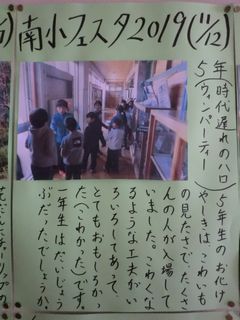 南小フェスタ2019(11/12)
5年(時代遅れのハロ
ウィンパーティー)
5年生のお化け
やしきは、こわいも
の見たさで、たくさ
んの人が入場して
いました。こわくな
るような工夫がい
ろいろしてあって、
とてもおもしろかっ
た(こわかった)です。
一年生はだいじょう
ぶだったでしょうか。